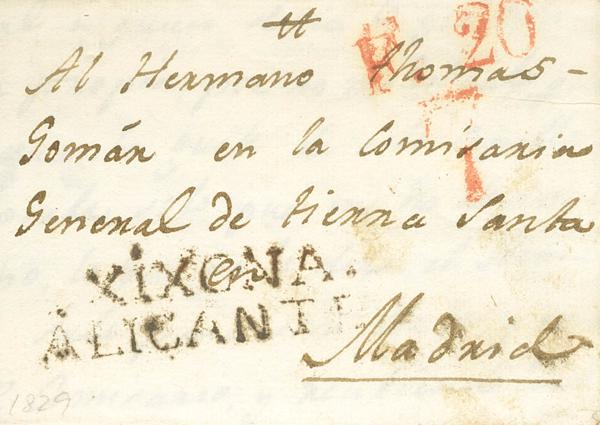 tt
R 20
Al Hermano Thomas
Gomár en la Comisaria
General de tierra Santa
en
XIXONA.
ALICANTE
Madrid
1829